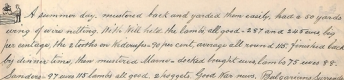 A summer day, mustered back and yarded them easily, had a 50 yards
wing of wire netting. W. H. Will held the lambs all good - 287 and 245 ewe big
percentage, the 2 tooths on hideups - 90 per cent, average all round 115, finished back
by dinner time, then mustered Manse - docked bought ewe lambs 75 ewes 98.
Sanders - 97 ewe 115 lambs all good 2 hoggets. Good War news, Bulgarians Surrender